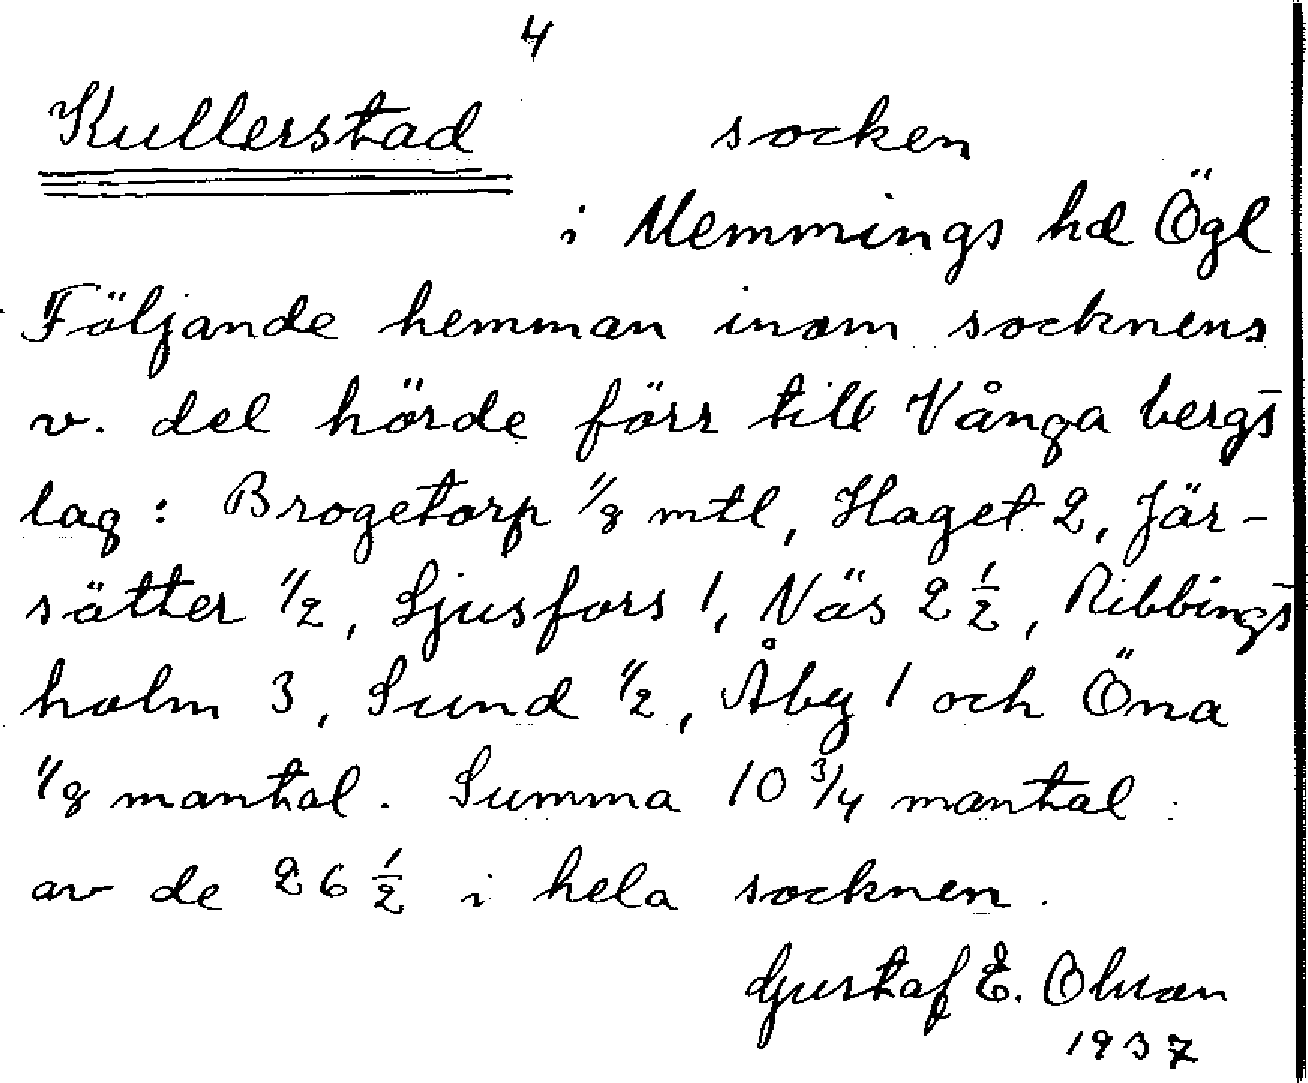 4
Kullerstad socken
i Memmings hd Ögl
Följande hemman inom socknens
v. del hörde förr till Vånga bergs-
lag: Brogetorp 1/8 mtl, Haget 2, Jär-
sätter 1/2, Ljusfors 1, Näs 2 1/2, Ribbings-
holm 3, Sund 1/2, Åby 1 och Öna
1/8 mantal. Summa 10 3/4 mantal
av de 26 1/2 i hela socknen.
Gustaf E. Olsson
1937